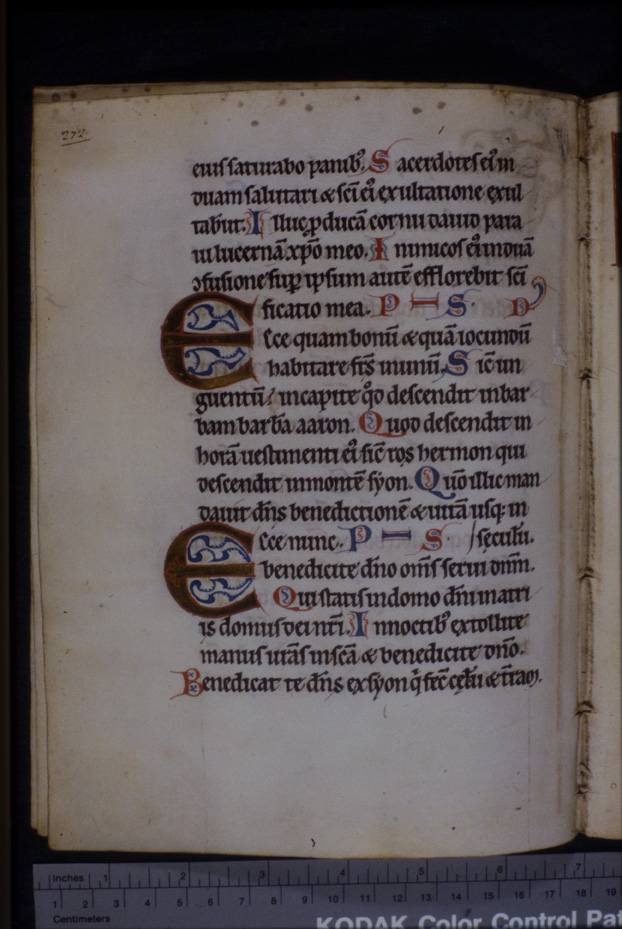 272.
eius saturabo panib᷒. S acerdotes ei᷒ in
duam salutari & sc̄i ei᷒ exultatione exul
tab̄ut. I lluc ꝓducā cornu dauid para
ui lucernā xp̄o meo. I nimicos ei᷒ induā
ɔfusione suꝑ ipsum autē efflorebit sc̄i
ficatio mea. P S D
E cce quam bonū & quā iocundū
habitare fr̄s in unū. S ic̄ un
guentū in capite qͦd descendit in bar
bam barba aaron. Quod descendit in
horā uestimenti ei᷒ sic̄ ros hermon qui
descendit in montē syon. Qm̄ illic man
dauit dn̄s benedictionē & uitā usq; in
E cce nunc. P S. / sęculū.
benedicite dn̄o om̄s serui dn̄i.
Qui statis in domo dn̄i in atri
is domus dei nr̄i. I n noctib᷒ extollite
manus ur̄as in sc̄a & benedicite dn̄o.
Benedicat te dn̄s ex syon q̄ fec̄ cęlū & t̄ram.
Inches 1 2 3 4 5 6 7
1 2 3 4 5 6 7 8 9 10 11 12 13 14 15 16 17 18 19
Centimeters
KODAK Color Control Pat